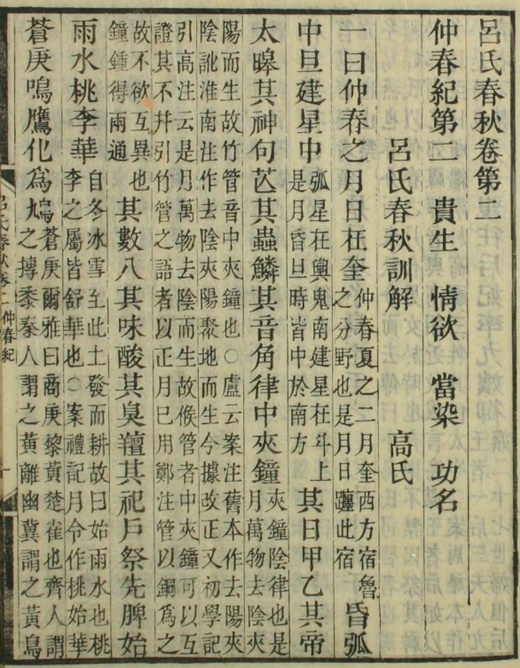 呂氏春秋卷第二
仲春紀第二 貴生 情欲 當染 功名
呂氏春秋訓解 高氏
一曰仲春之月日在奎仲春夏之二月奎西方宿魯之分野也是月日躔此宿昏弧
中旦建星中弧星在輿鬼南建星在斗上是月昏旦時皆中於南方其日甲乙其帝
太皞其神句芒其蟲鱗其音角律中夾鐘夾鐘陰律也是月萬物去陰夾
陽而生故竹管音中夾鐘也○盧云案注舊本作去陽夾
陰訛淮南注作去陰夾陽聚地而生今據改正又初學記
引高注云是月萬物去陰而生故候管者中夾鐘可以互
證其不幷引竹管之語者以正月已用鄭注管以銅爲之
故不欲互異也鐘鍾得兩通其數八其味酸其臭羶其祀戶祭先脾始
雨水桃李華自冬冰雪至此土發而耕故曰始雨水也桃李之屬皆舒華也○案禮記月令作桃始華
蒼庚鳴鷹化爲鳩蒼庚爾雅曰商庚黎黃楚雀也齊人謂之摶黍秦人謂之黃離幽冀謂之黃鳥
呂氏春秋卷二 仲春紀 一